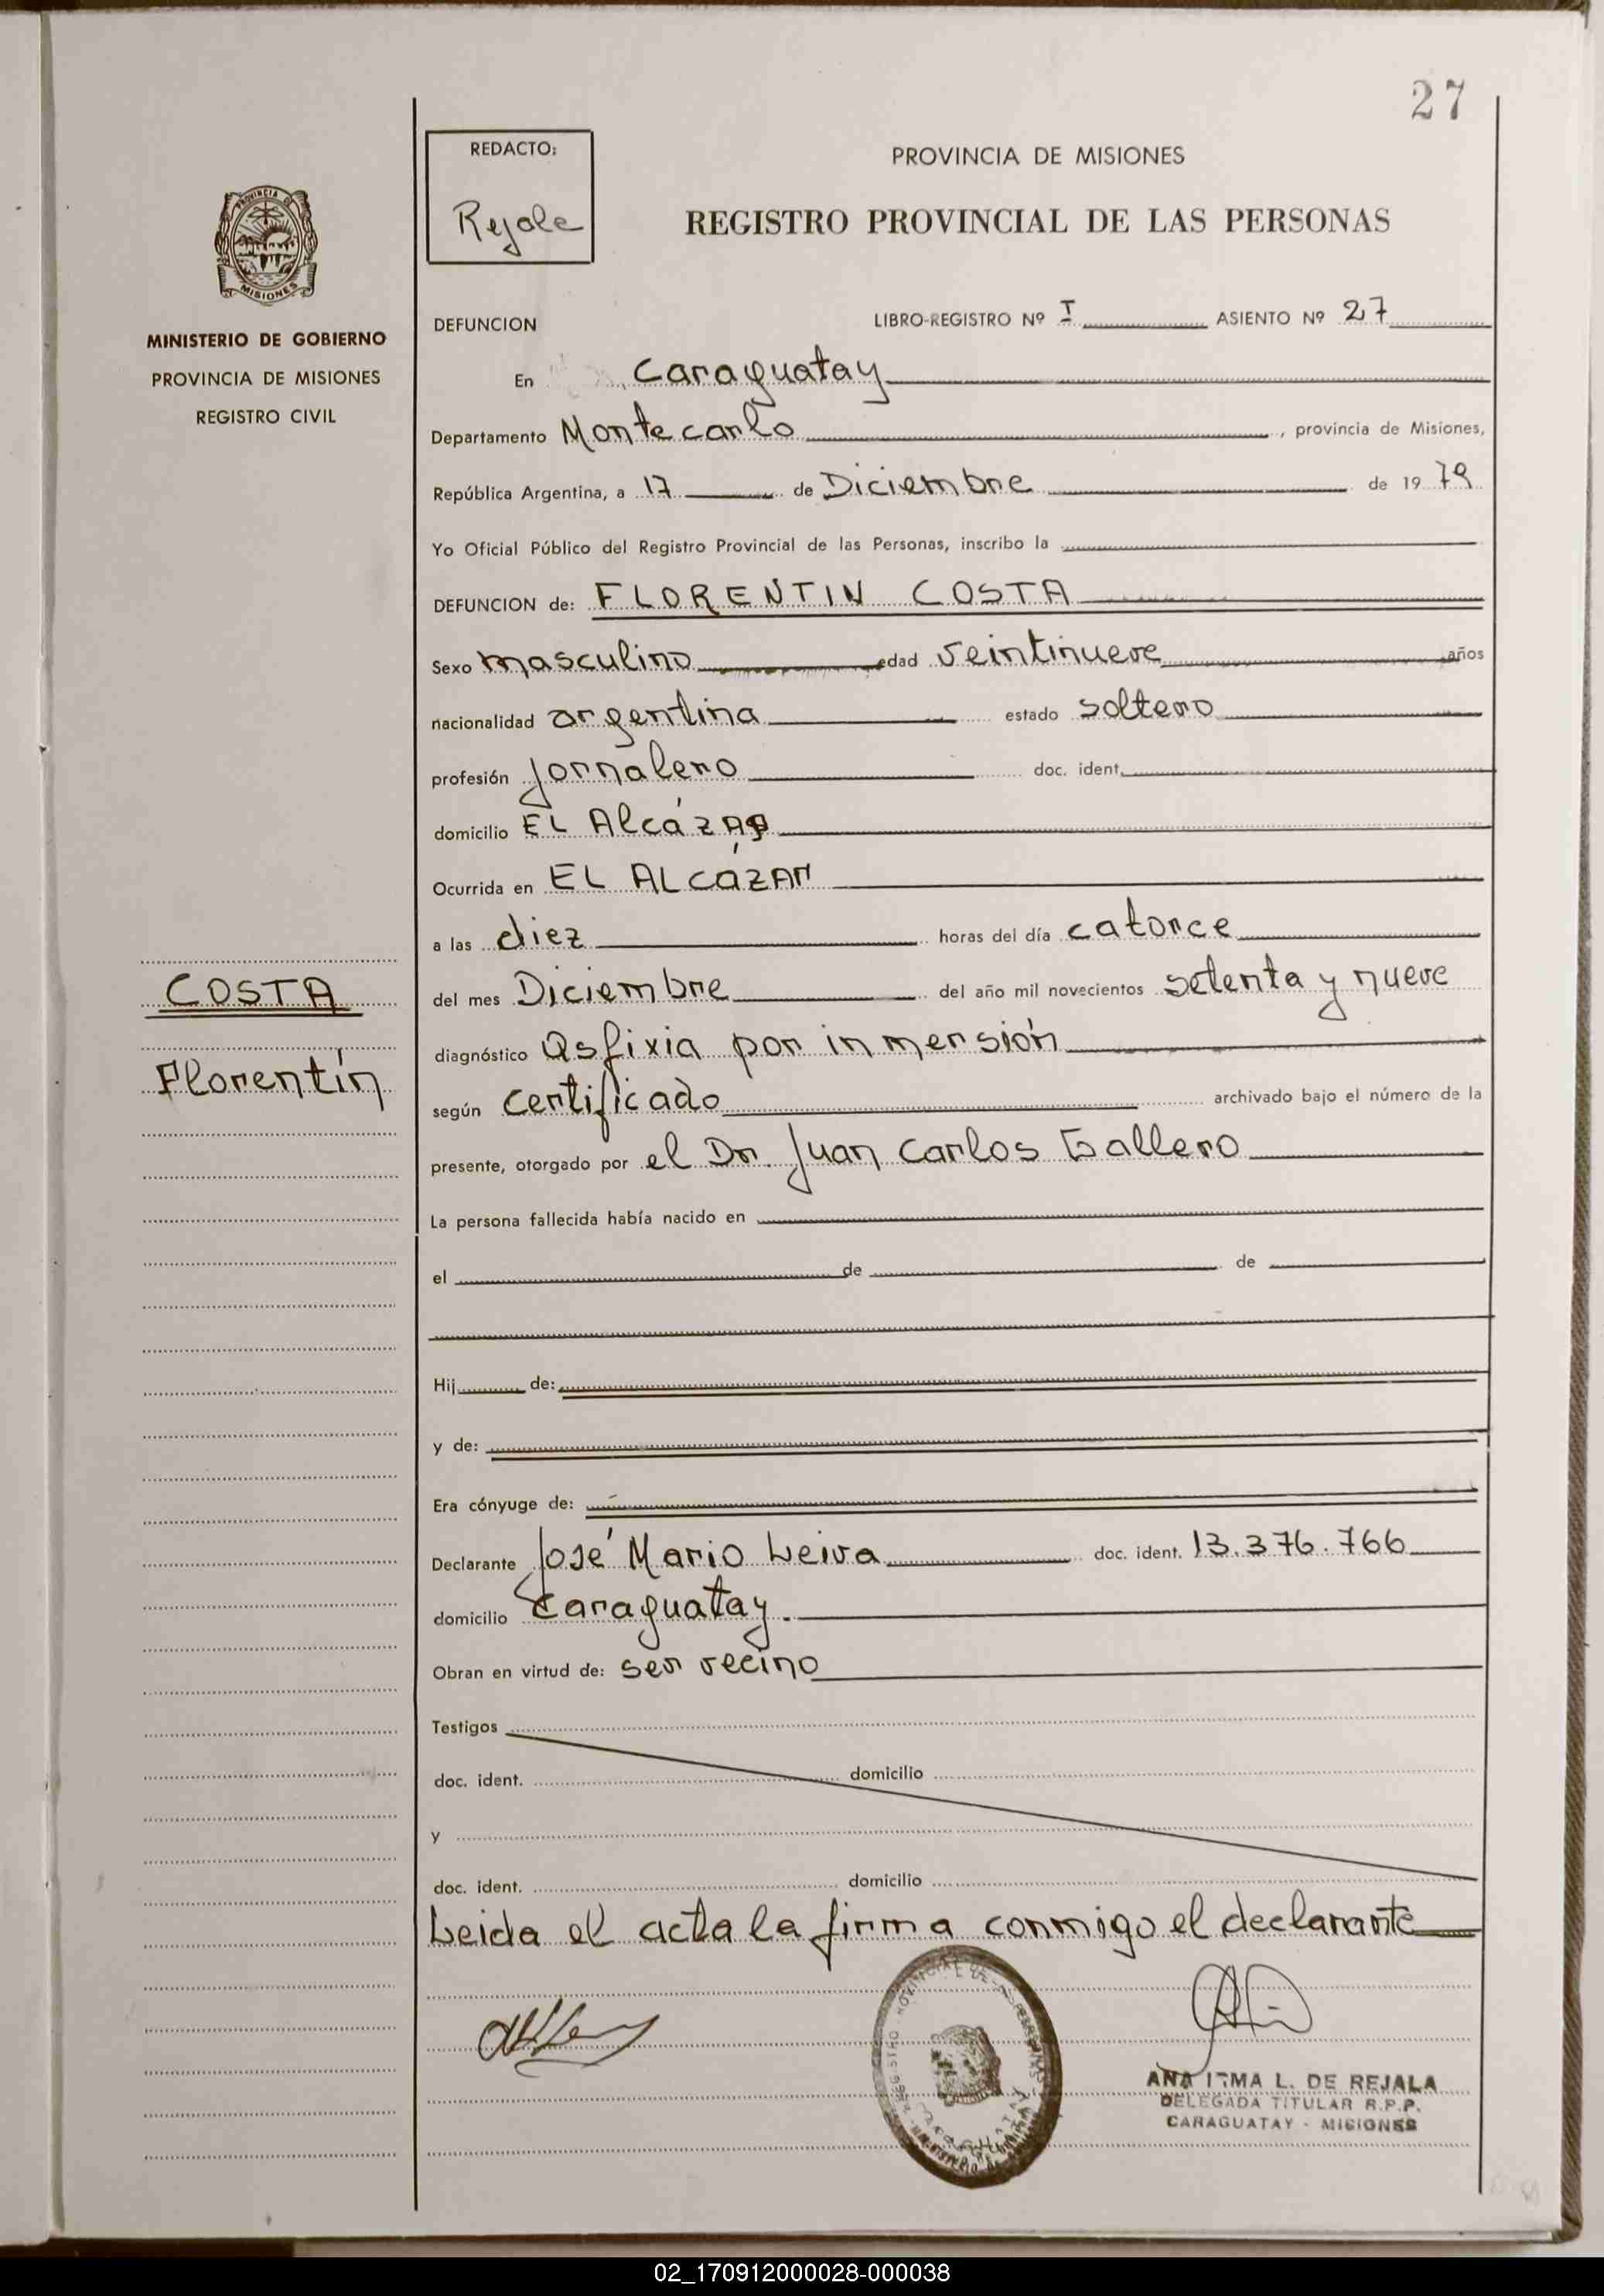 27
REDACTO:
Rejala
PROVINCIA DE MISIONES
REGISTRO PROVINCIAL DE LAS PERSONAS
PROVINCIA DE
MISIONES
MINISTERIO DE GOBIERNO
PROVINCIA DE MISIONES
REGISTRO CIVIL
DEFUNCION
LIBRO-REGISTRO Nº I ASIENTO Nº 27
En Caraguatay
Departamento Montecarlo, provincia de Misiones,
República Argentina, a 17 de Diciembre de 1979
Yo Oficial Público del Registro Provincial de las Personas, inscribo la
DEFUNCION de: FLORENTIN COSTA
Sexo masculino edad veintinueve años
nacionalidad argentina estado soltero
profesión jornalero doc. ident.
domicilio EL Alcázar
Ocurrida en EL ALCÁZAR
a las diez horas del día catorce
COSTA
del mes Diciembre del año mil novecientos setenta y nueve
diagnóstico Asfixia por inmersión
Florentín
según certificado archivado bajo el número de la
presente, otorgado por el Dr. Juan Carlos Gallero
La persona fallecida había nacido en
el de de
Hij de:
y de:
Era cónyuge de:
Declarante José Mario Leiva doc. ident. 13.376.766
domicilio Caraguatay.
Obran en virtud de: ser vecino
Testigos
doc. ident. domicilio
y
doc. ident. domicilio
Leida el acta la firma conmigo el declarante
ANA IRMA L. DE REJALA
DELEGADA TITULAR R.P.P.
CARAGUATAY - MISIONES
02_170912000028-000038